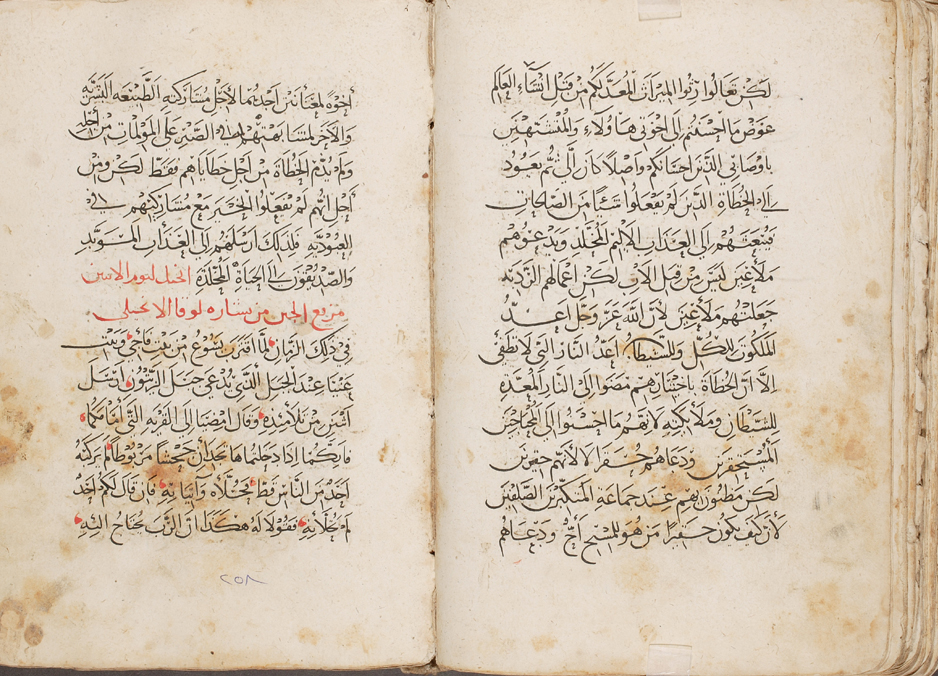 لكن تعالوا رثوا الميراث المعد لكم من قبل انشاء العالم
عوض ما احسنتم الى اخوتي هاولاء والمنتهين
باوصاتي الذين احتاجكم واصلاً كان لي ثم يعود
الى الخطاة الذين لم يفعلوا شيئاً من الصالحات
فيبعثهم الى العذاب الاليم المخلد ويدعوهم
ملاعين ليس من قبل الاب لكن اعمالهم الرديه
جعلتهم ملاعين لان الله عز وجل اعد
الملكوت للكل وللشيطان اعد النار التي لا تطفى
الا ان الخطاة باختيارهم مضوا الى النار المعدة
للشيطان وملايكته لانهم ما احسنوا الى المحتاجين
المسيحيين ودعاهم حقرا لا لانهم حقرين
لكن مظنون بهم عند جماعة المتكبرين الصلفين
لان كيف يكون حقيراً من هو للمسيح أخٌ ودعاهم
أخوة لمعنايين احدهما لاجل مشاركته الطبيعه البشريه
والاخر لمشابهتهم له في الصبر على المولمات من اجله
ولم يذم الخطاة من أجل خطاياهم فقط لكن ومن
أجل انهم لم يفعلوا الخير مع مشاركيهم في
العبوديه فلذلك ارسلهم الى العذاب المؤبد
والصديقون الى الحياة المخلدة الخيل ليوم الاثنين
من رفع الجبن من بشاره لوقا الانجيلي
في ذلك الزمان لما اقترب يسوع من بيت فاجي وبيت
عنيا عند الجبل الذي يُدعى جبل الزيتون ارسل
اثنين من تلاميذه وقال امضيا الى القريه التي أمامكما
فانكما اذا دخلتماها تجدان جحشاً مربوطاً لم يركبه
أحد من الناس قط فحُلاه وأتيا به فان قال لكم احد
لم تحلانه فقولا له هكذا ان الرب يحتاج اليه
٢٥٨